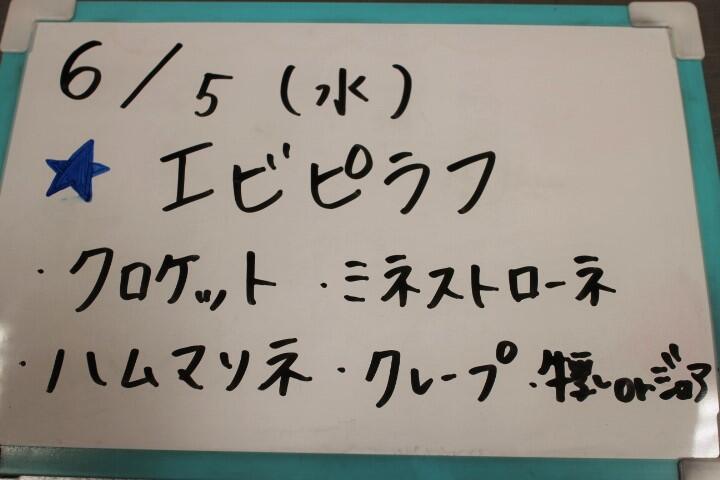 6/5(水)
★ エビピラフ
・クロケット ・ミネストローネ
・ハムマリネ ・クレープ ・牛乳orジョア